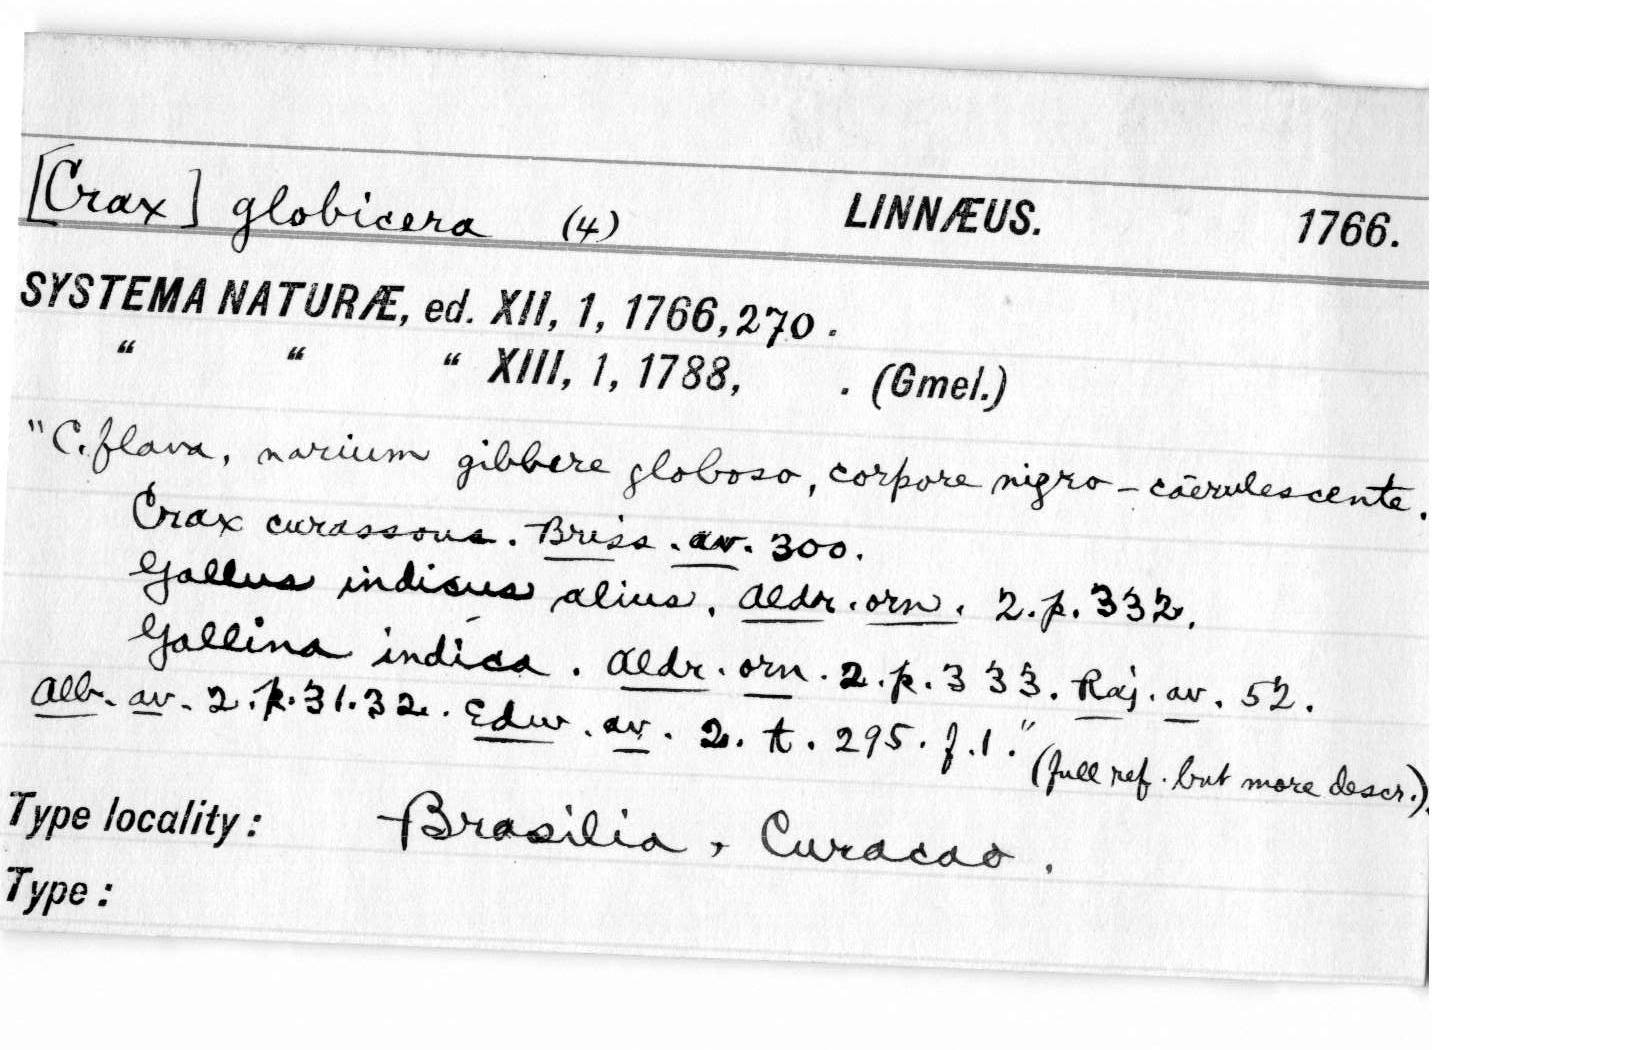 [Crax] globicera (4) LINNÆUS. 1766.
SYSTEMA NATURÆ, ed. XII, 1, 1766, 270.
“ “ “ XIII, 1, 1788, . (Gmel.)
"C. flava, narium gibbere globoso, corpore nigro-cäerulescente.
Crax curassous. Briss. av. 300.
Gallus indicus alius. Aldr. orn. 2. p. 332.
Gallina indica. Aldr. orn. 2. p. 333. Raj. av. 52.
Alb. av. 2. p. 31. 32. Edw. av. 2. t. 295. f. 1." (full ref. but more descr.).
Type locality: Brasilia, Curacao.
Type: